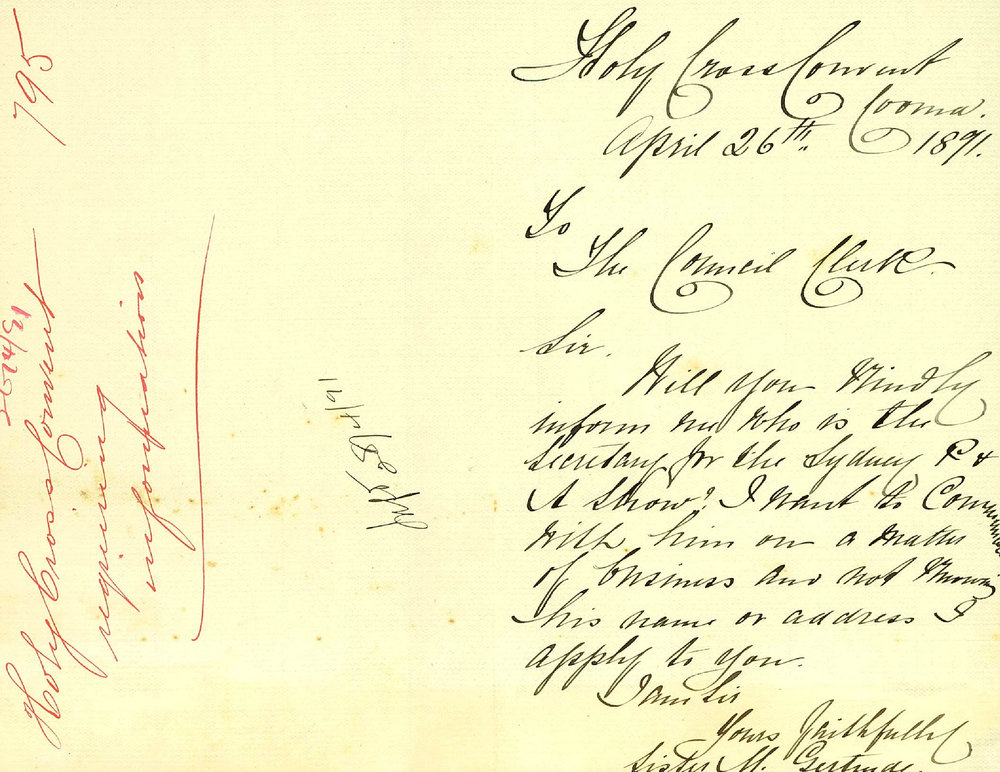 Holy Cross Convent
Cooma.
April 26th. 1891.
To
The Council Clerk.
Sir.
Will you kindly
inform me who is the
Secretary for the Sydney R &
A Show? I want to Communicate
with him on a matter
of business and not knowing
his name or address I
apply to you.
I am Sir
Yours faithfully
Sister M. Gertrude.
795
26/4/91
Holy Cross Convent
requiring
information
28/4/91